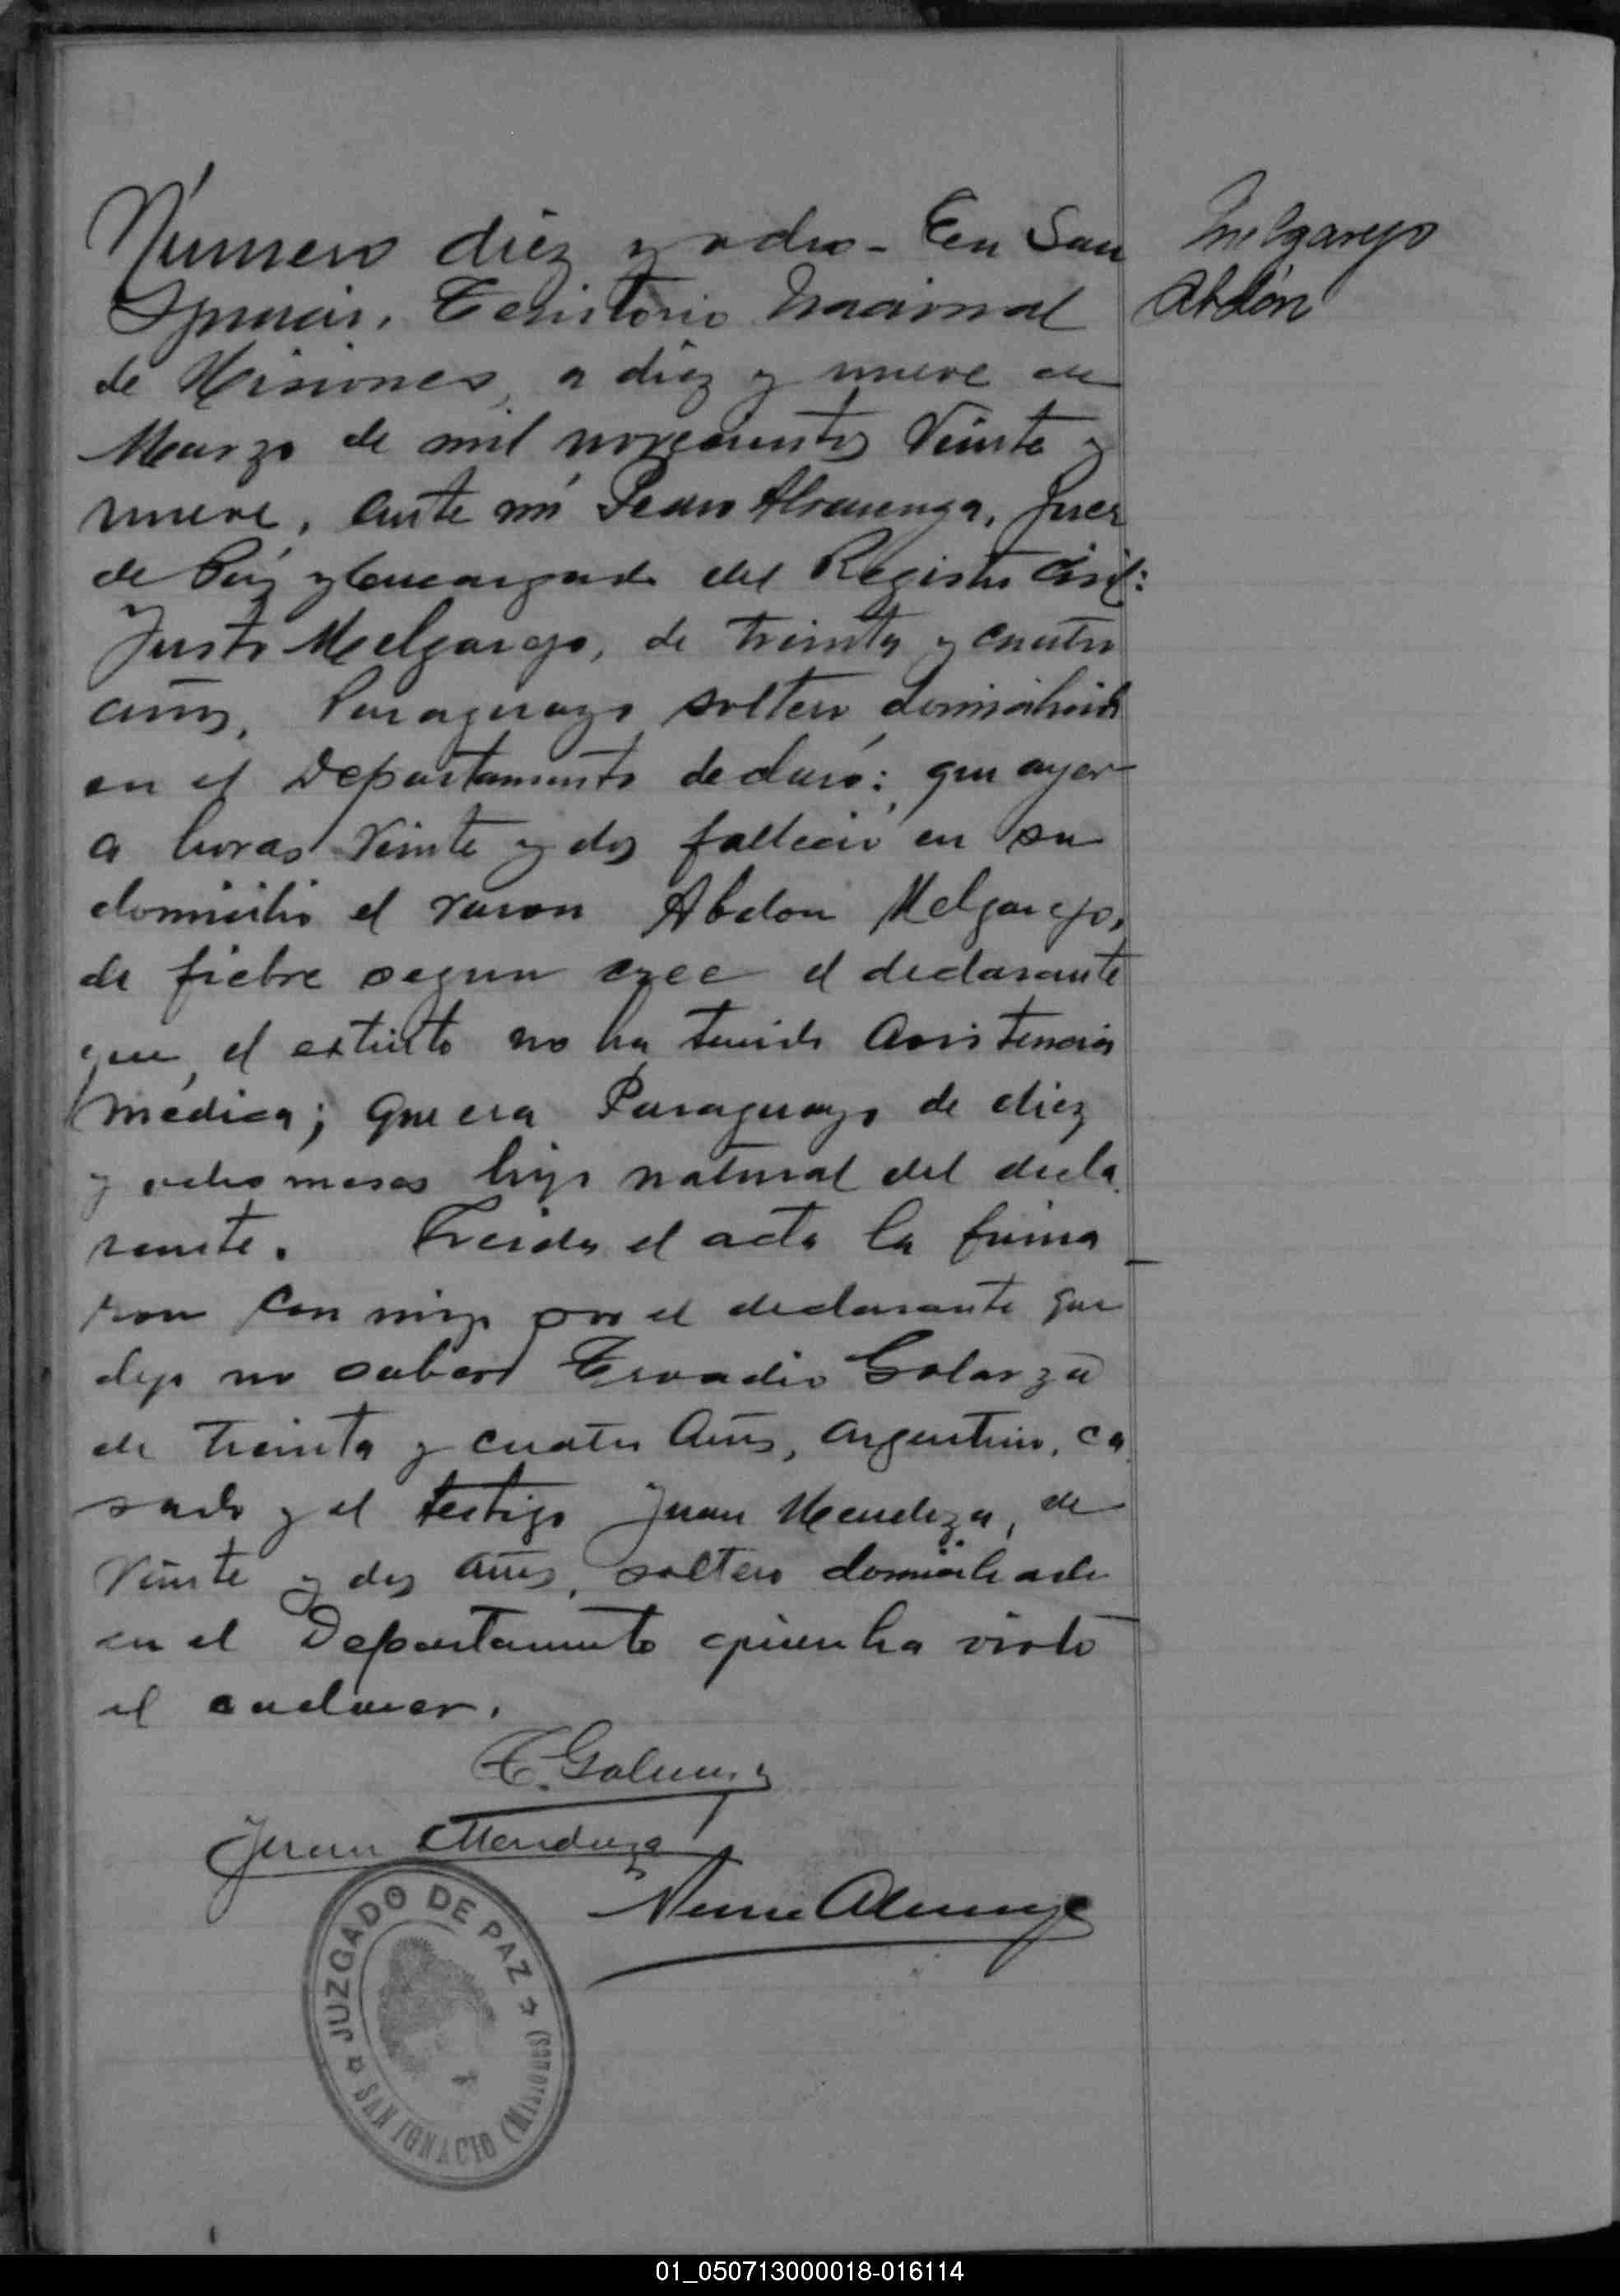 Número diez y ocho - En San
Ignacio, Territorio Nacional
de Misiones, a diez y nueve de
Marzo de mil novecientos Veinte y
nueve, ante mí Pedro Alvarenga, Juez
de Paz y Encargado del Registro Civil:
Justo Melgarejo, de treinta y cuatro
años, Paraguayo soltero, domiciliado
en el Departamento declaró: que ayer
a horas Veinte y dos falleció en su
domicilio el varon Abdon Melgarejo,
de fiebre segun cree el declarante
que, el extinto no ha tenido asistencia
médica; que era Paraguayo de diez
y ocho meses hijo natural del decla
rante. Leida el acta la firma
ron con migo por el declarante que
dijo no saber Golarza
de treinta y cuatro años, argentino, ca
sado y el testigo Juan Mendoza, de
Veinte y dos años, soltero domiciliado
en el Departamento quien ha visto
el cadaver.
Melgarejo
Abdón
Juan Mendoza
JUZGADO DE PAZ
SAN IGNACIO (MISIONES)
01_050713000018-016114